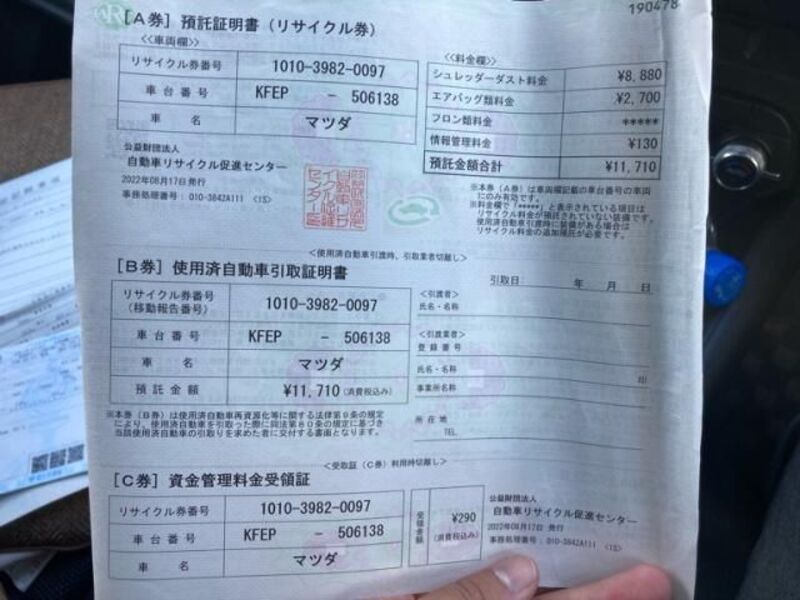 190478
[A券] 預託証明書(リサイクル券)
<<車両欄>>
リサイクル券番号 1010-3982-0097
車台番号 KFEP - 506138
車名 マツダ
<<料金欄>>
シュレッダーダスト料金 ¥8,880
エアバッグ類料金 ¥2,700
フロン類料金 *****
情報管理料金 ¥130
預託金額合計 ¥11,710
公益財団法人
自動車リサイクル促進センター
2022年08月17日 発行
事務処理番号: 010-3842A111 <1S>
※本券(A券)は車両欄記載の車台番号の車両
にのみ有効です。
※料金欄で「*****」と表示されている項目は
リサイクル料金が預託されていない装備です。
使用済自動車引渡時に装備がある場合は
リサイクル料金の追加預託が必要です。
<使用済自動車引渡時、引取業者切離し>
[B券] 使用済自動車引取証明書
引取日 年 月 日
リサイクル券番号
(移動報告番号) 1010-3982-0097
車台番号 KFEP - 506138
車名 マツダ
預託金額 ¥11,710(消費税込み)
<引渡者>
氏名・名称
<引渡業者>
登録番号
氏名・名称 印
事業所名称
所在地
TEL.
※本券(B券)は使用済自動車再資源化等に関する法律第9条の規定
により、使用済自動車を引取った際に同法第80条の規定に基づき
当該使用済自動車の引取りを求めた者に交付する書面となります。
<受取証(C券)利用時切離し>
[C券] 資金管理料金受領証
リサイクル券番号 1010-3982-0097
車台番号 KFEP - 506138
車名 マツダ
受領金額 ¥290
(消費税込み)
公益財団法人
自動車リサイクル促進センター
2022年08月17日 発行
事務処理番号: 010-3842A111 <1S>